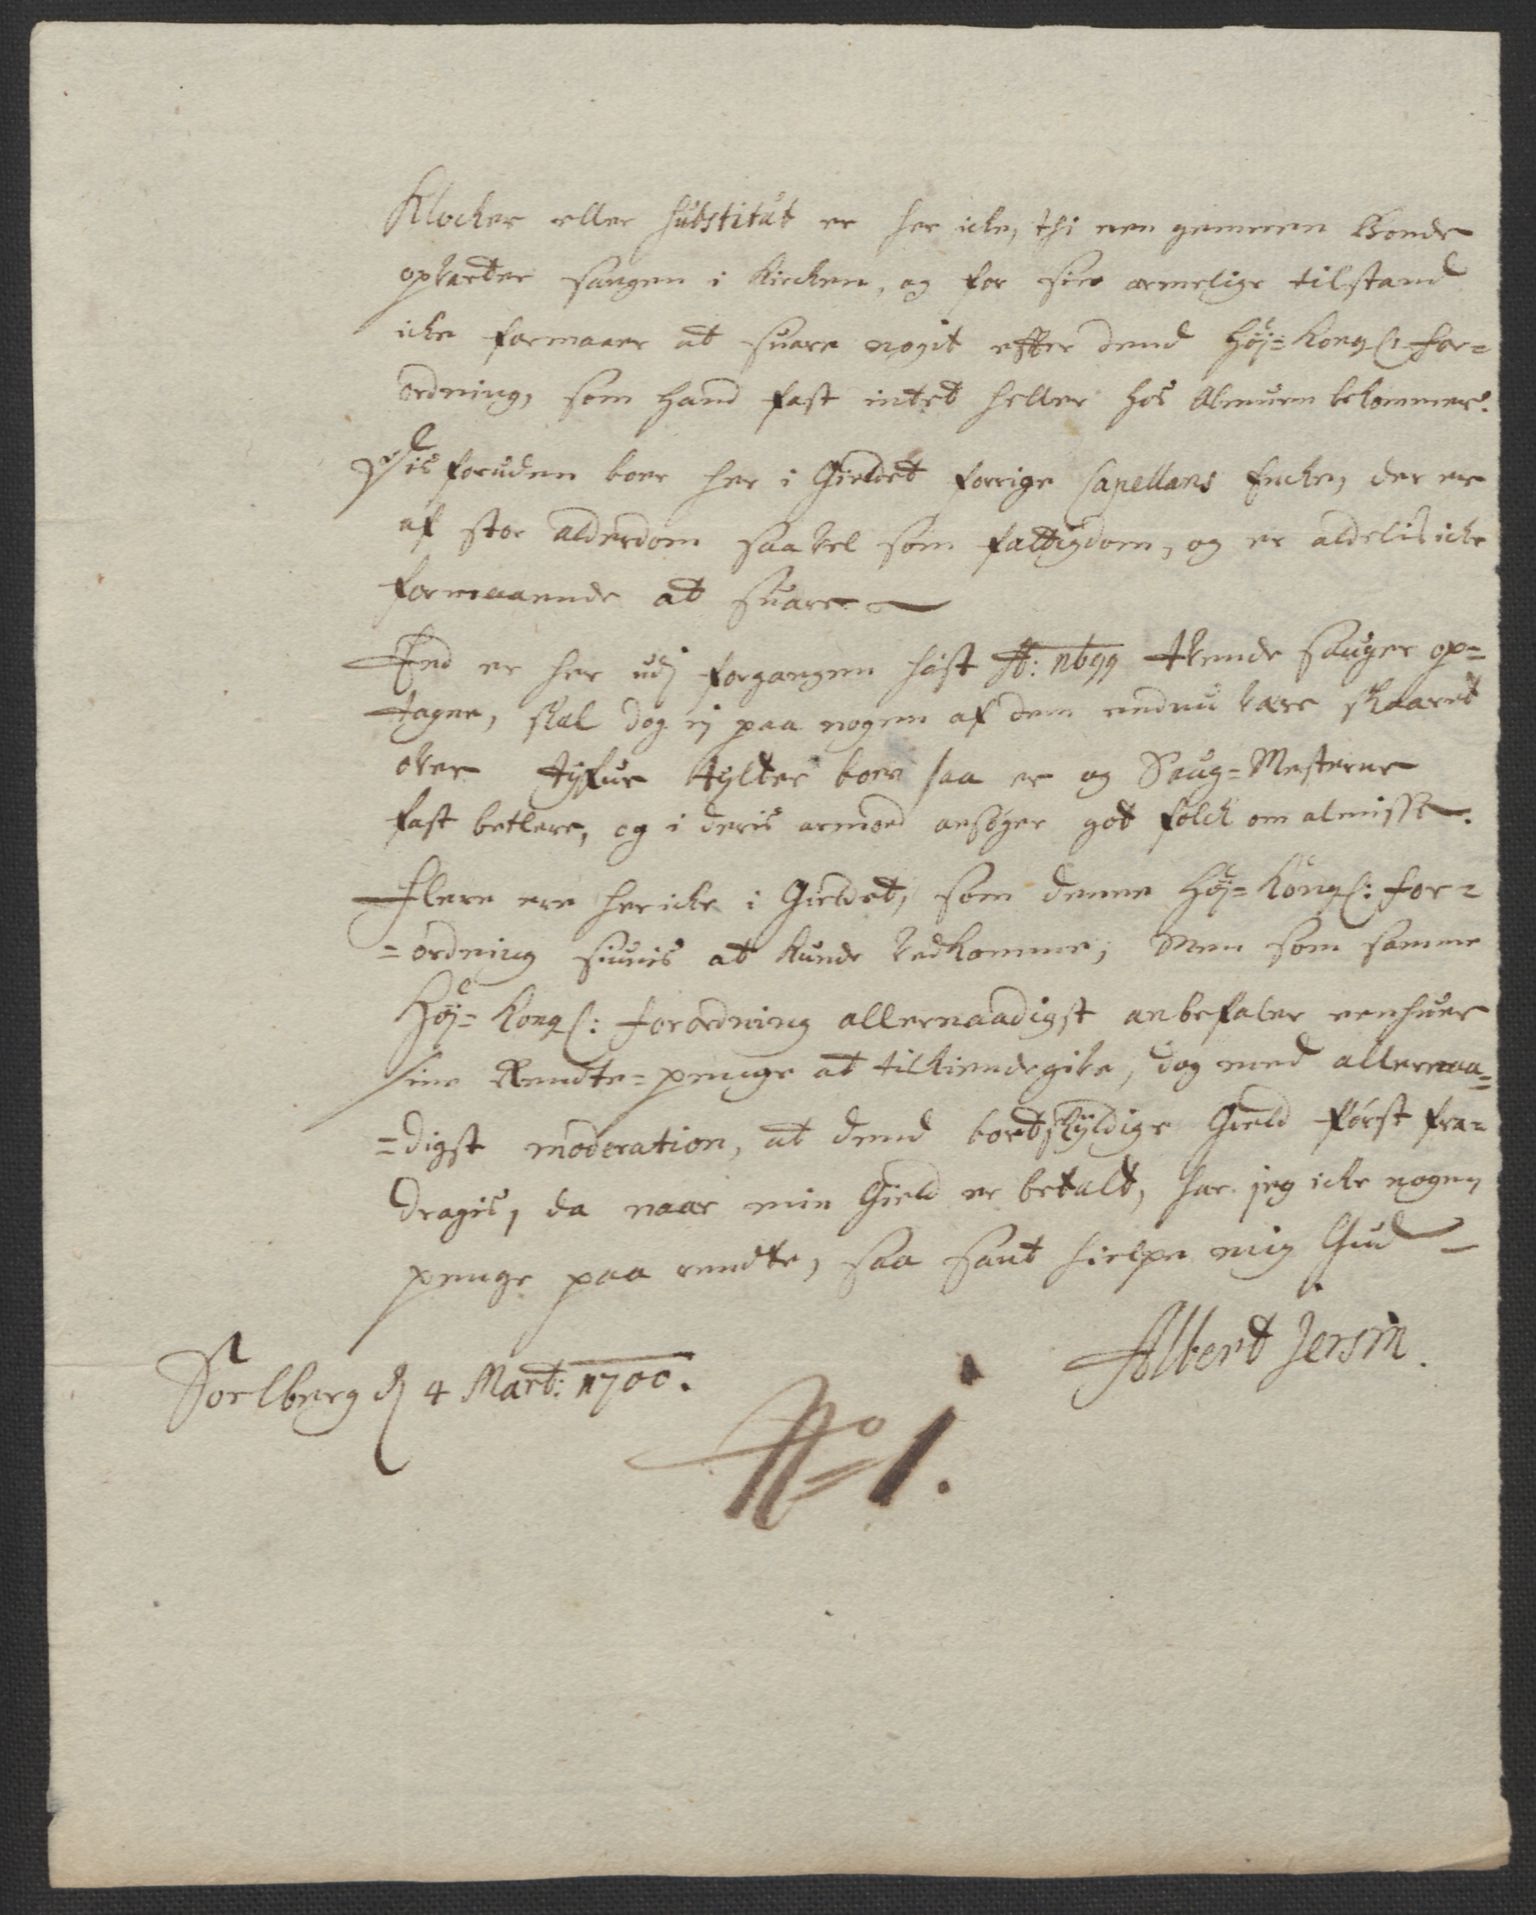 Klocker eller substitut er her icke, thi een gemeen Bonde
opvarter sangen i Kircken, og for sin armelige tilstand
icke formaaer at suare nogit effter dend Høj=Kongl: for=
ordning, som hand fast intet heller hos Almuen bekommer.
Dis foruden boer her i Gieldet forrige Capellans Encke, der er
af stor alderdom saa vel som fattigdom, og er aldelis icke
formaaende at suare
End er her udj forgangen høst Ao: 1699 tvende sauger op=
tagne, skal dog ej paa nogen af dem endnu være skaaret
over tyfue tylter boer saa er og Saug=Mesterne
fast betlere, og i deris armod ansøger got folck om almisse.
Flere ere her icke i Gieldet, som denne Høj=Kongl: for=
=ordning siunis at kunde vedkomme; Men som samme
Høj=Kongl: forordning allernaadigst anbefaler eenhuer
sine Rendte=penge at tilkiendegive, dog med allernaa=
=digst moderation, at dend bortskyldige Gield først fra=
dragis, da naar min Gield er betalt, har jeg icke nogen
penge paa rendte, saa sant hielpe mig Gud
Albert Jersin.
Soelberg d 4 Mart: 1700.
No 1.